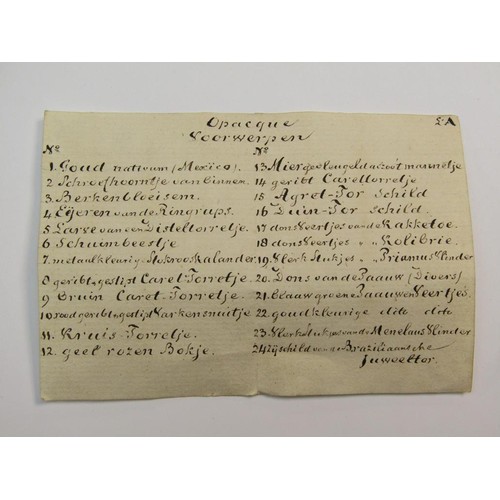 Opacque
Voorwerpen
L:A
No
1. Goud nativum (Mexico).
2 Schroefhoorntje van binnen.
3. Berkenbloeisem.
4. Eijeren van de Ringrups.
5. Larve van een Disteltorretje.
6 Schuimbeestje
7. metaalkleurig Stokrooskalander
8 geribt, gestipt Caret-Torretje.
9 Bruin Caret-Torretje.
10 rood geribt, gestipt Varkensnuitje
11. Kruis-Torretje.
12. geel rozen Bokje.
No
13 Mier gevleugeld mannetje
14 geribt Carettorretje
15 Agret-Tor Schild
16 Duin-Tor Schild.
17 donsVeertjes van de Kakketoe.
18 donsVeertjes " " Kolibrie.
19. Vlerk Stukjes " " Priamus Vlinder
20. Dons van de Paauw (Divers)
21. Blauw groene Paauwen Veertjes.
22 goudkleurige dito dito
23. Vlerk Stukje van de Menelaus Vlinder
24 Rijschild van de Braziliaansche
Juweeltor.